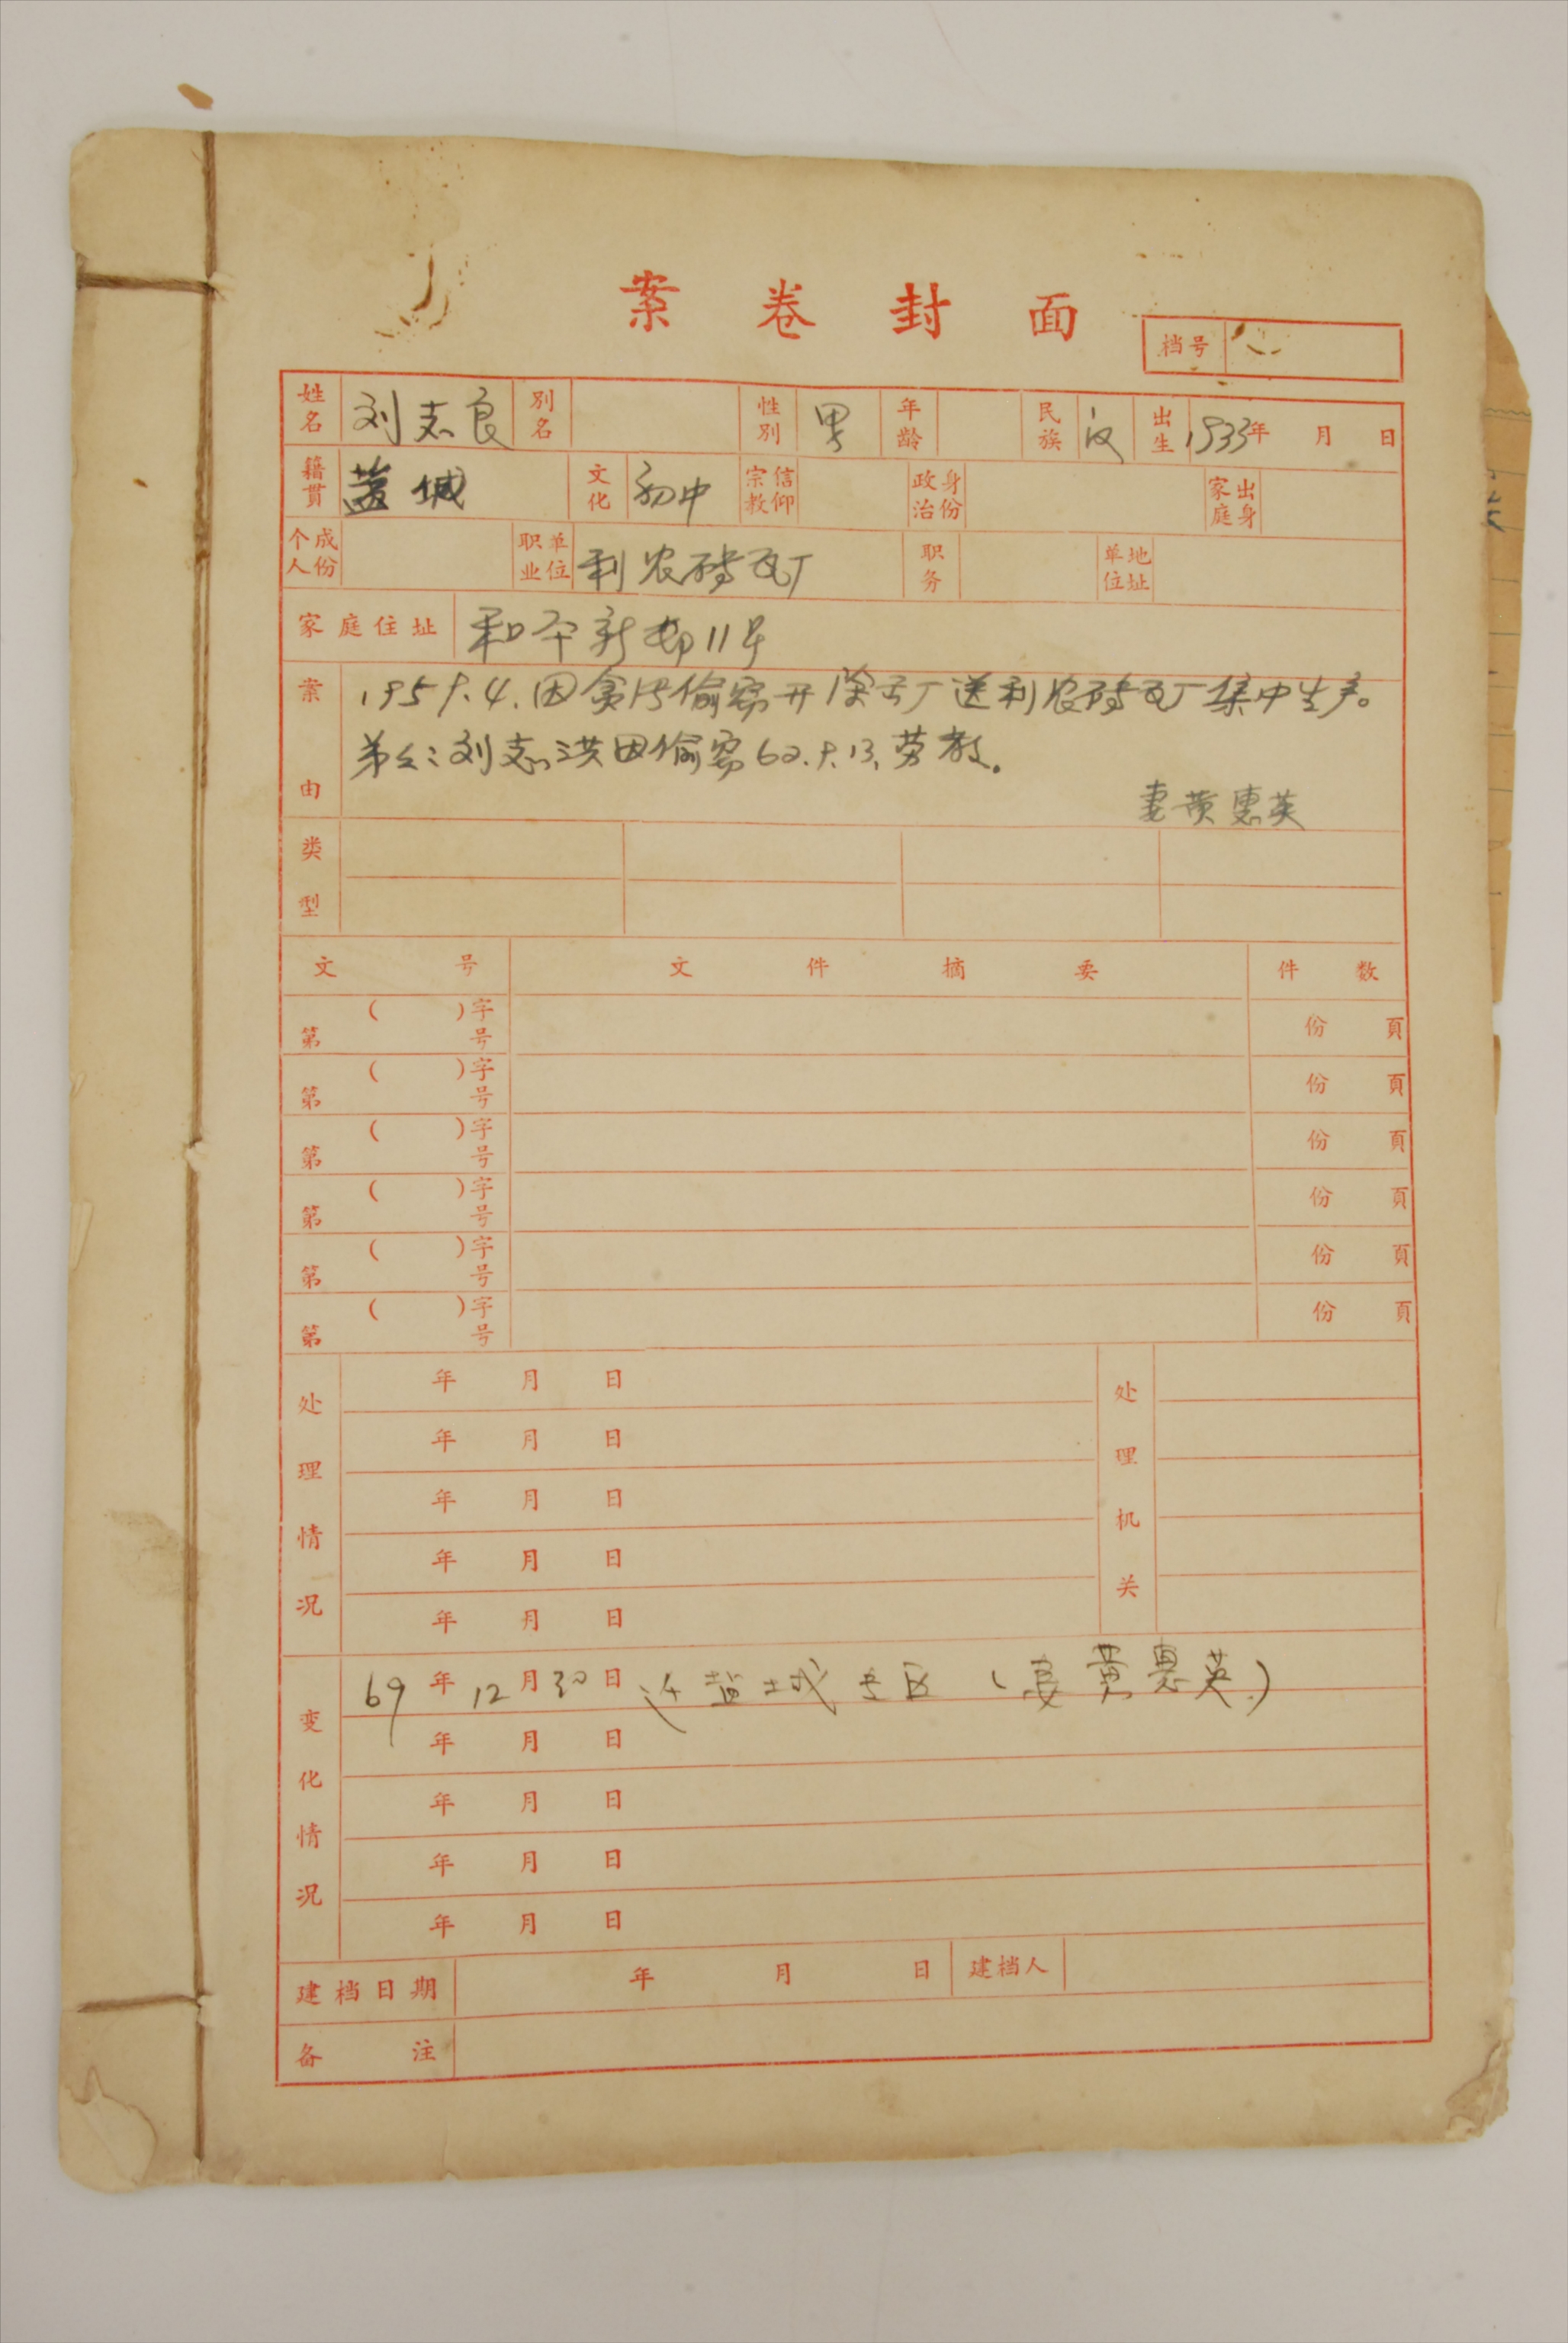 案卷封面
档号
姓名 刘志良 别名 性别 男 年龄 民族 汉 出生 1933年 月 日
籍贯 盐城 文化 初中 宗教信仰 政治身份 家庭出身
个人成份 职业单位 利农砖瓦厂 职务 单位地址
家庭住址 和平新邨11号
案由 1959.4.因贪污偷窃开除出厂送利农砖瓦厂集中生产。
弟弟:刘志洪因偷窃62.9.13.劳教。
妻黄惠英
类型
文号 文件摘要 件数
第( )字号 份 頁
第( )字号 份 頁
第( )字号 份 頁
第( )字号 份 頁
第( )字号 份 頁
第( )字号 份 頁
处理情况 年 月 日 处理机关
年 月 日
年 月 日
年 月 日
年 月 日
变化情况 69年12月30日 迁盐城专区(妻黄惠英)
年 月 日
年 月 日
年 月 日
年 月 日
建档日期 年 月 日 建档人
备注